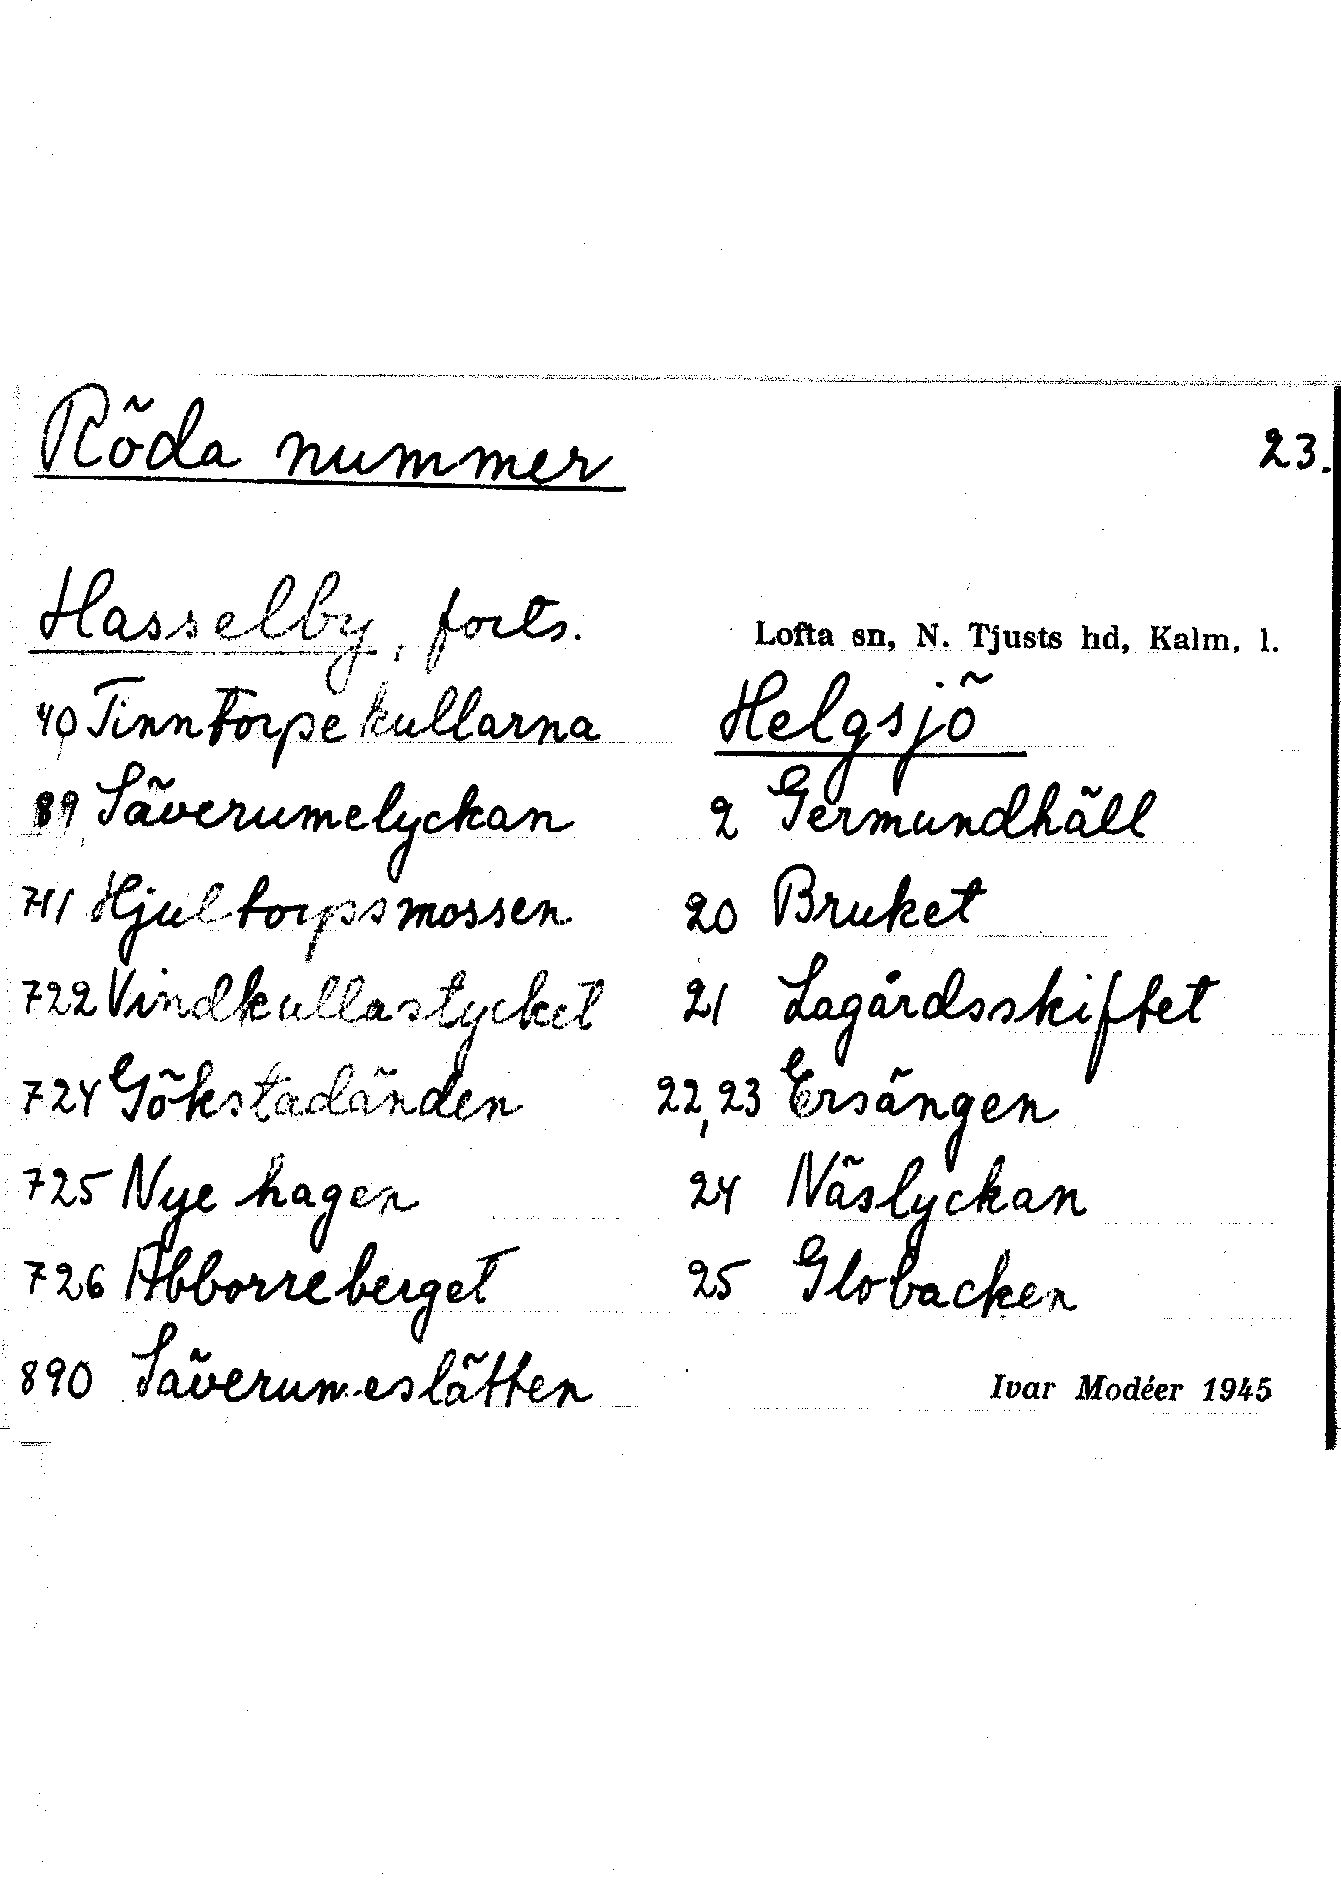 Röda nummer
23.
Hasselby, forts.
40 Tinntorpekullarna
89 Säverumelyckan
711 Hjultorpsmossen
722 Vindkullastycket
724 Gökstadänden
725 Nye hagen
726 Abborreberget
890 Säverumeslätten
Lofta sn, N. Tjusts hd, Kalm. l.
Helgsjö
2 Germundhäll
20 Bruket
21 Lagårdsskiftet
22, 23 Ersängen
24 Näslyckan
25 Globacken
Ivar Modéer 1945